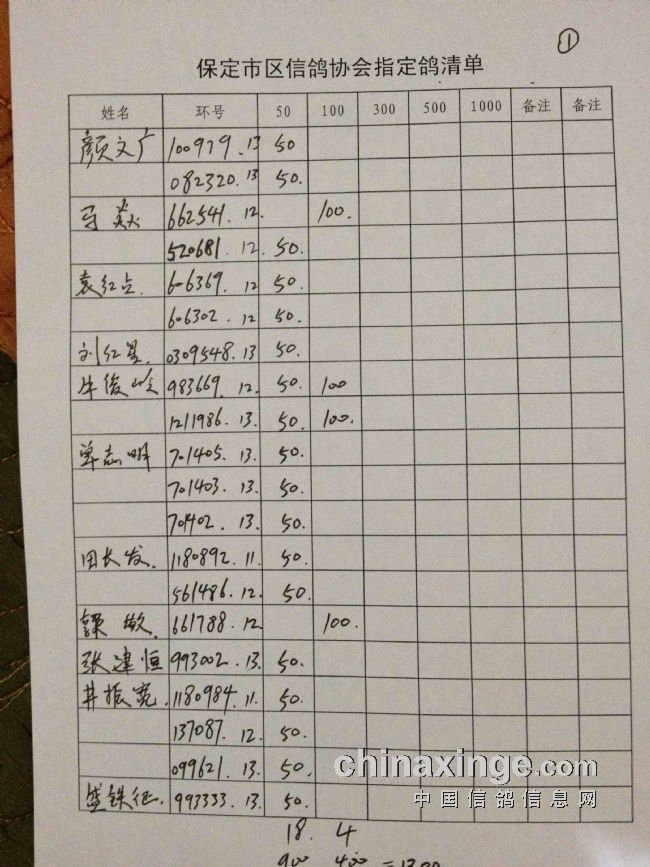 ①
保定市区信鸽协会指定鸽清单
姓名 环号 50 100 300 500 1000 备注 备注
颜文广 100979.13 50
082320.13 50.
马焱 662541.12. 100.
520681.12. 50.
袁红占. 606369.12 50.
606302.12 50.
刘红星. 0309548.13 50.
牛俊岭 983669.12. 50. 100
1211986.13. 50. 100.
单志明 701405.13. 50.
701403.13. 50.
701402.13. 50.
田长发. 1180892.11. 50.
561486.12 50.
661788.12 100.
张建恒 993002.13. 50.
井振宽. 1180984.11. 50.
137087.12. 50
099621.13. 50.
铁征. 993333.13. 50.
chinaxinge.com
中国信鸽信息网
18. 4
900 400 =1300